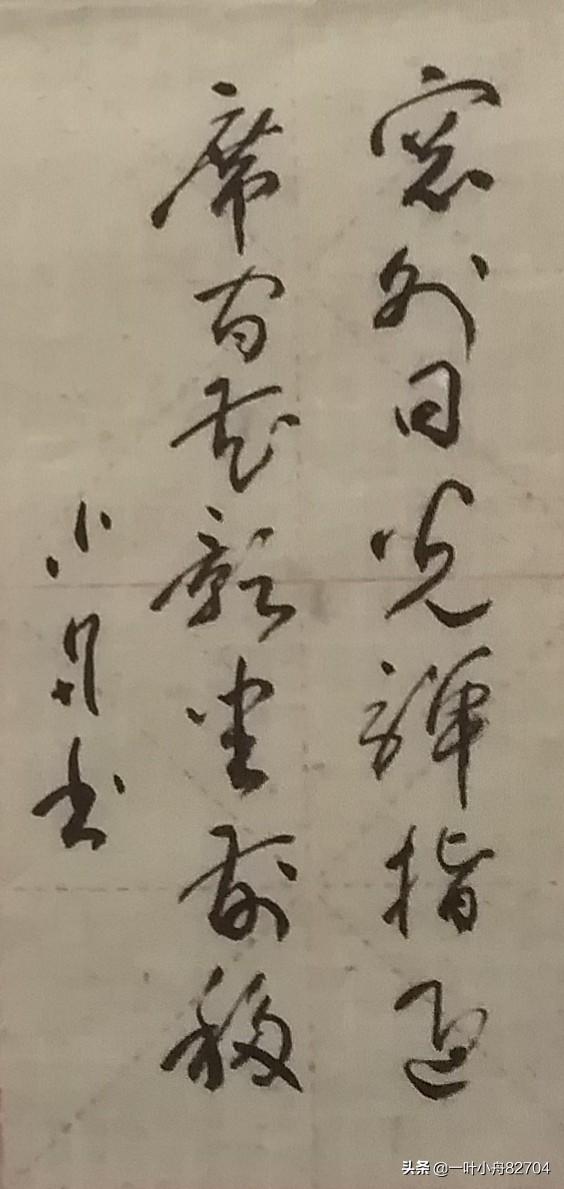 窓外日光彈指過
席間花影坐前移
小舟书
头条@一叶小舟82704